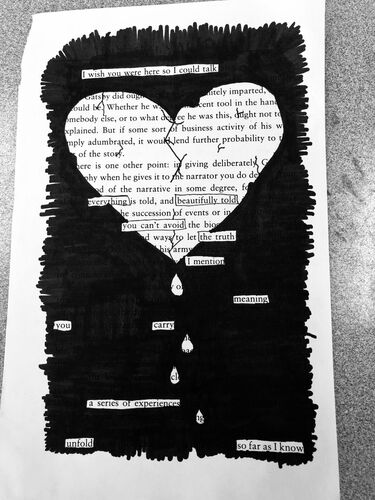 I wish you were here so I could talk
Gatsby did ough nitely imparted,
could be. Whether he w cent tool in the hand
omebody else, or to what de e he was this, ght not to
xplained. But if some sort of business activity of his w
mply adumbrated, it would lend further probability to
of the story.
here is one other point: in giving deliberately
phy when he gives it to the narrator you do de
od of the narrative in some degree, fo
everything is told, and beautifully told
the succession of events or in
you can't avoid the bio
and ways to let the truth
his army
I mention
meaning
you carry
a series of experiences
unfold so far as I know